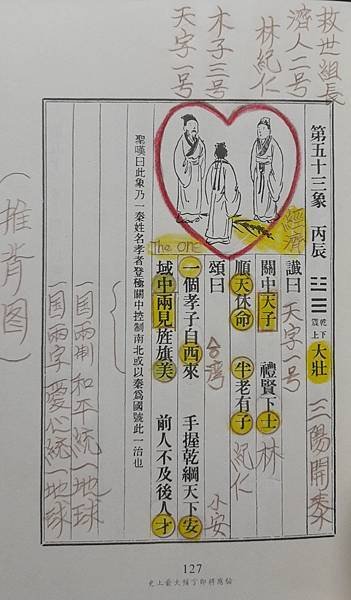 救世組長
濟人二号
林紀仁
木子三号
天字一号
第五十三象 丙辰 乾下 震上 大壯
三陽開泰
讖曰 天字号
關中天子 禮賢下士 林
順天休命 半老有子 紀仁
頌曰 台灣
一個孝子自西來 手握乾綱天下安 小安
域中兩見旌旗美 前人不及後人才
經濟
The one
聖嘆曰此象乃一秦姓名孝者登極關中控制南北或以秦爲國號此一治也
一国兩制 和平統一地球
一国兩字 愛心統一地球
(推背图)
127
史上最大預言即將應驗